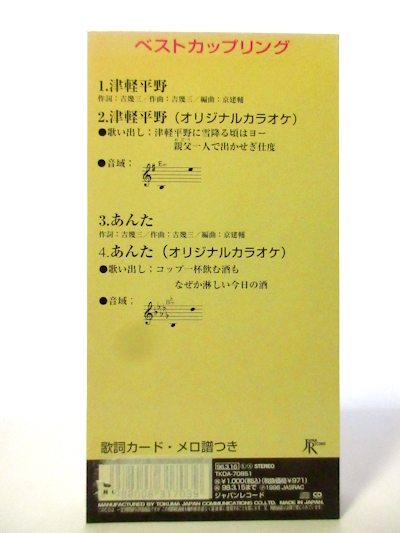 ベストカップリング
1.津軽平野
作詞:吉幾三／作曲:吉幾三／編曲:京建輔
2.津軽平野(オリジナルカラオケ)
●歌い出し:津軽平野に雪降る頃はヨー
親父一人で出かせぎ仕度
●音域:
Em
3.あんた
作詞:吉幾三／作曲:吉幾三／編曲:京建輔
4.あんた(オリジナルカラオケ)
●歌い出し:コップ一杯飲む酒も
なぜか淋しい今日の酒
●音域:
歌詞カード・メロ譜つき
96.3.16 STEREO
TKDA-70851
¥1,000(税込)(税抜価格¥971)
98.3.15まで Ⓟ1996 JASRAC
ジャパンレコード
CD
MANUFACTURED BY TOKUMA JAPAN COMMUNICATIONS CO., LTD. MADE IN JAPAN.